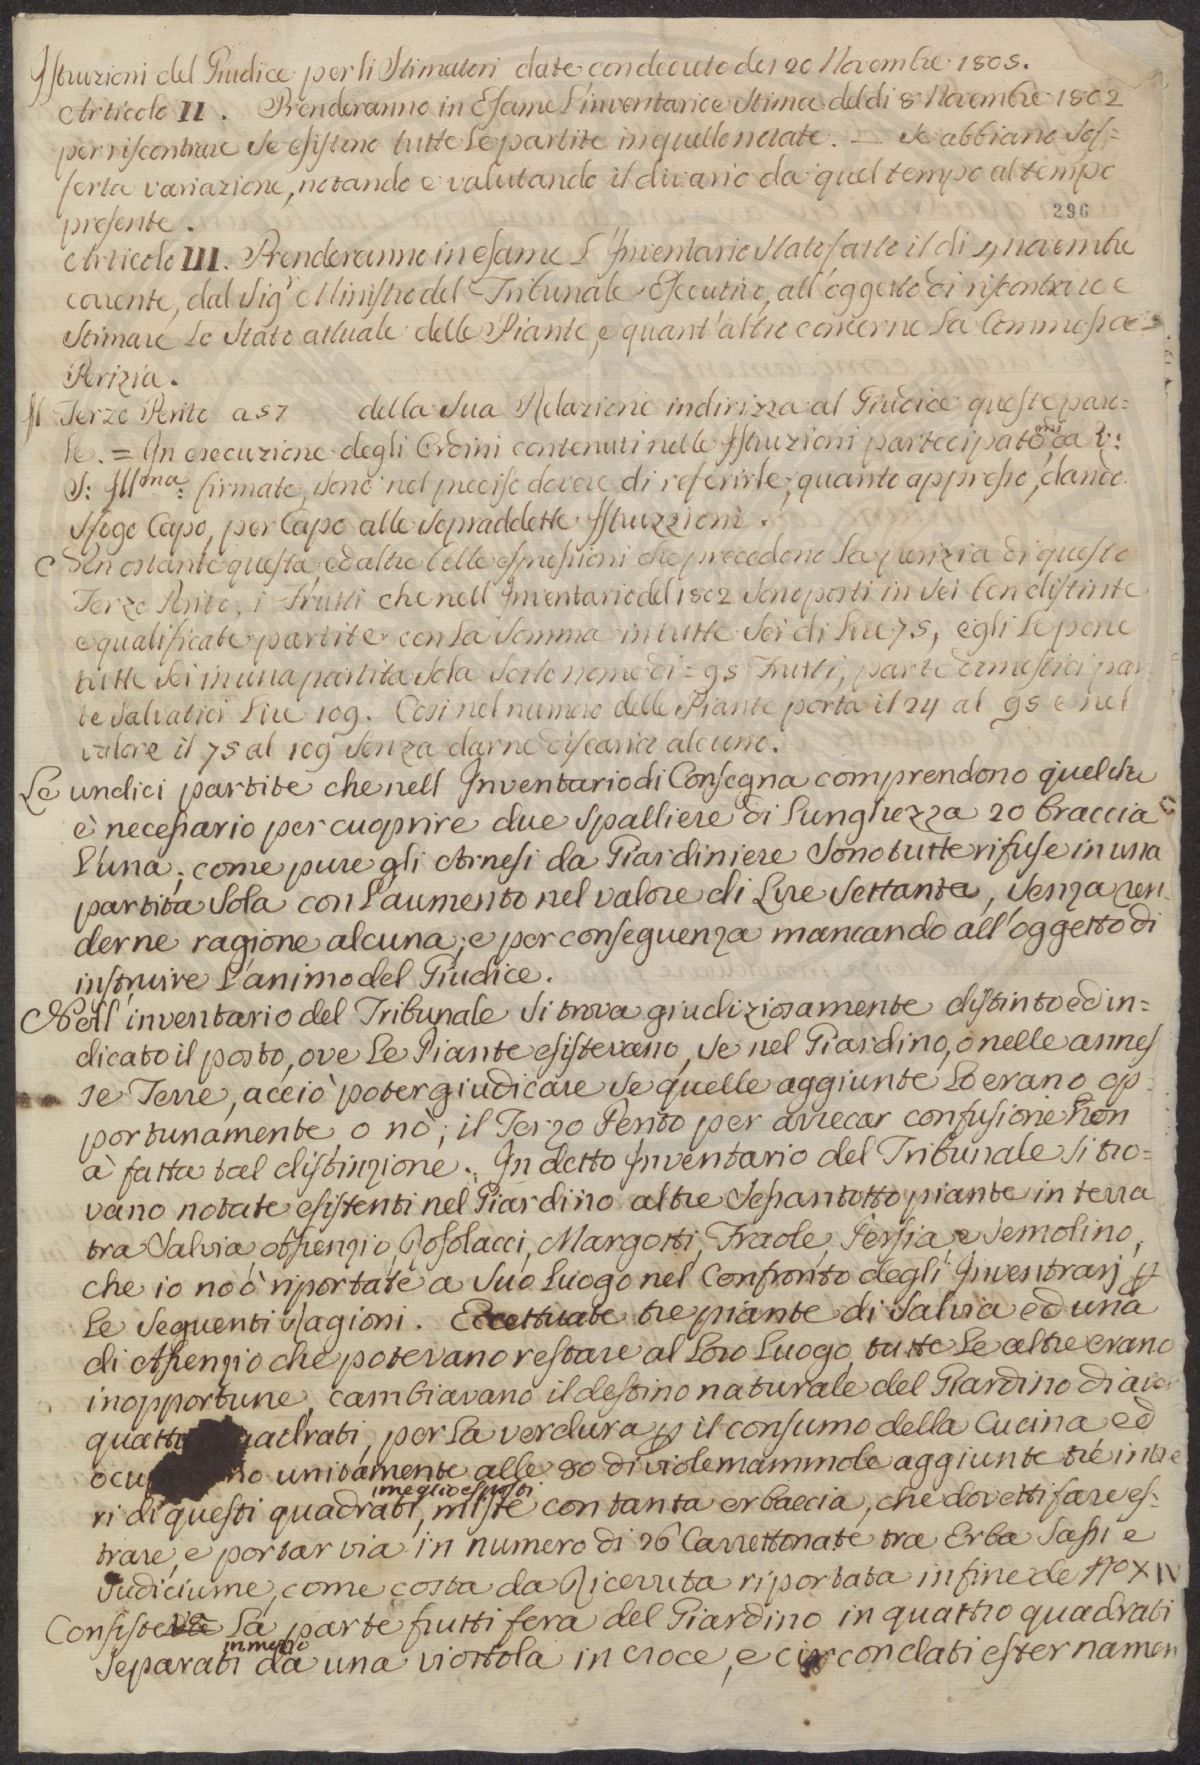 Istruzioni del Giudice per li Stimatori date con decreto dei 20 Novembre 1805.
Articolo II. Prenderanno in Esame L'inventario e Stima del dì 8 Novembre 1802
per riscontrare Se esistino tutte Le partite in quello notate. — Se abbiano Sof=
ferta variazione, notando e valutando il divario da quel tempo al tempo
presente.
296
Articolo III. Prenderanno in esame L'Inventario Stato fatto il dì 4 novembre
corrente, dal Sigr Ministro del Tribunale Esecutivo, all'oggetto di riscontrare e
Stimare Lo Stato attuale delle Piante, e quant'altro concerne La Commessa
Perizia.
Il Terzo Perito a 57 della Sua Relazione indirizza al Giudice queste paro=
le. = In esecuzione degli Ordini contenuti nelle Istruzioni partecipato da V:
S: Illma: firmate, Sono nel preciso dovere di referirle, quanto appresso, dando
Sfogo Capo, per Capo alle Sopraddette Istruzzioni.
Non ostante questa, ed altre belle espressioni che precedono La perizia di questo
Terzo Perito, i Frutti che nell Inventario del 1802 Sono posti in Sei ben distinte
e qualificate partite con La Somma in tutte Sei di Lire 75, egli Le pone
tutte Sei in una partita Sola Sotto nome di = 95 Frutti, parte dimestici par
te Salvatici Lire 109. Così nel numero delle Piante porta il 24 al 95 e nel
valore il 75 al 109 Senza darne discarico alcuno.
Le undici partite che nell Inventario di Consegna comprendono quel che
è necessario per cuoprire due Spalliere di Lunghezza 20 braccia
L'una, come pure gli Arnesi da Giardiniere Sono tutte rifuse in una
partita Sola con L'aumento nel valore di Lire Settanta, Senza ren
derne ragione alcuna, e per conseguenza mancando all'oggetto di
instruire L'animo del Giudice.
Nell inventario del Tribunale Si trova giudiziosamente distinto ed in=
dicato il posto, ove Le Piante esistevano, Se nel Giardino, o nelle annes
se Terre, acciò poter giudicare Se quelle aggiunte Lo erano op=
portunamente o nò; il Terzo Perito per arrecar confusione Non
à fatta tal distinzione. In detto Inventario del Tribunale Si tro=
vano notate esistenti nel Giardino altre Sessantotto piante in terra
tra Salvia Assenzio, Rosolacci, Margotti, Fraole, Persia, e Semolino,
che io no ò riportate a Suo Luogo nel Confronto degli Inventrarj p
Le Seguenti Ragioni. Eccettuate tre piante di Salvia ed una
di Assenzio che potevano restare al Loro Luogo, tutte Le altre erano
inopportune, cambiavano il destino naturale del Giardino di aver
quattro quadrati, per La verdura p il consumo della Cucina ed
unitamente alle 80 di viole mammole aggiunte tre inte
i meglio esposti
ri di questi quadrati, miste con tanta erbaccia, che dovetti fare es=
trare, e portar via in numero di 26 Carrettonate tra Erba Sassi e
Sudiciume, come costa da Ricevuta riportata in fine de No XIV
Consisteva La parte fruttifera del Giardino in quattro quadrati
in mezzo
Separati da una viottola in croce, e circondati esternamen